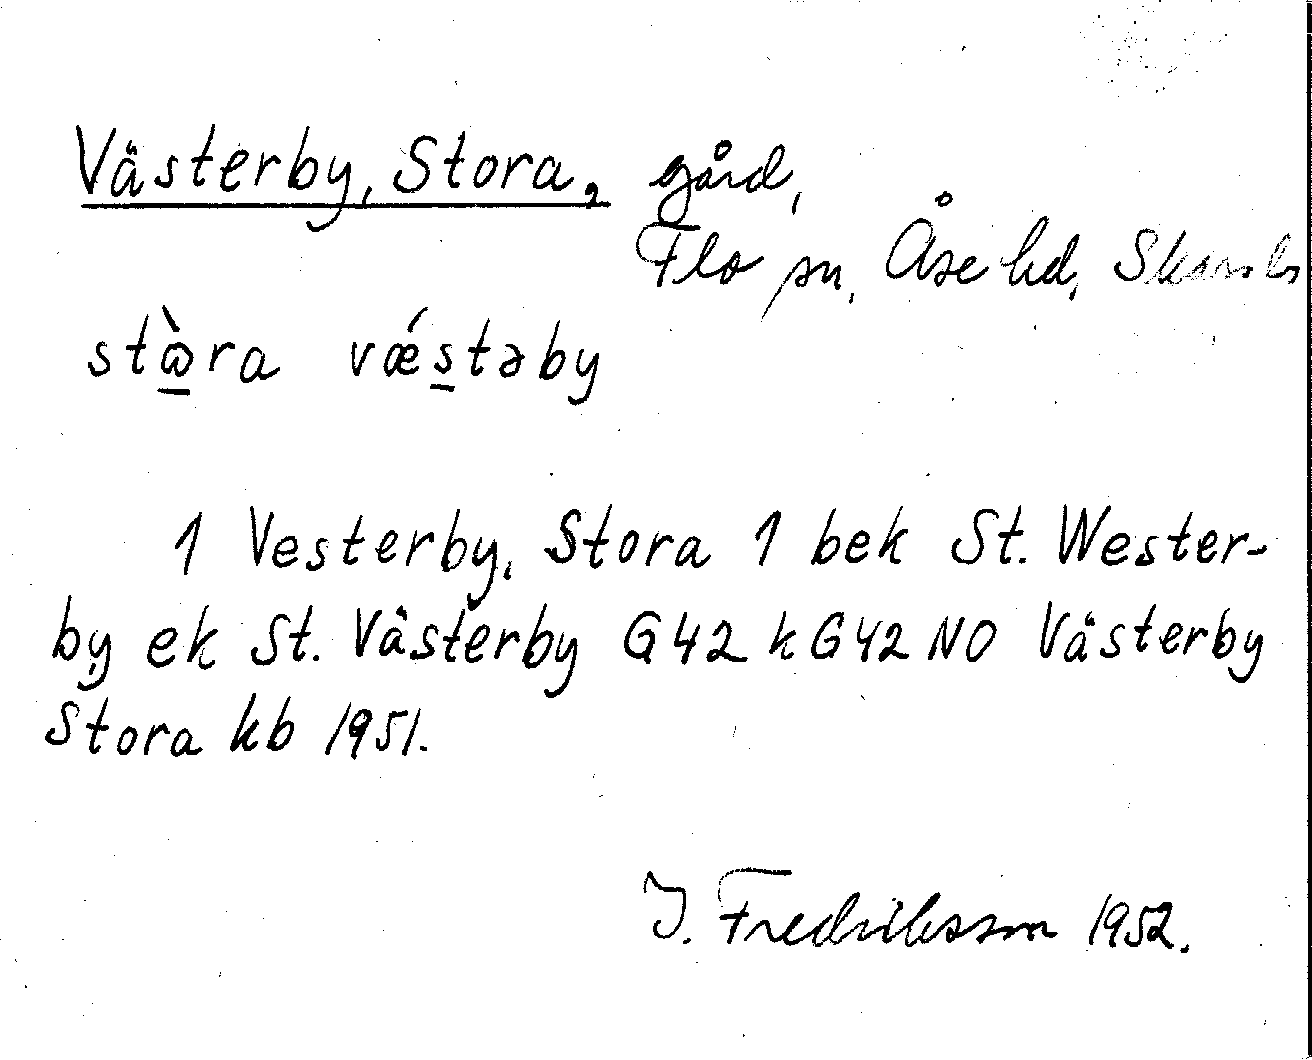 Västerby, Stora, gård,
Flo sn, Åse hd, Skarab
stὼra vǽstəby
1 Vesterby, Stora 1 bek St. Wester-
by ek St. Västerby G42 k G42 NO Västerby
Stora kb 1951.
I. Fredriksson 1952.